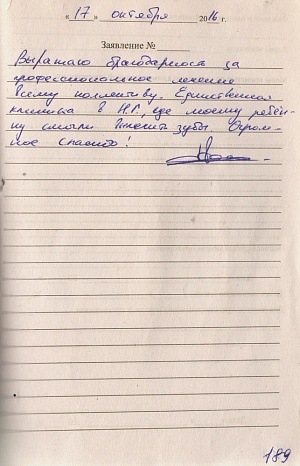 « 17 » октября 2016 г.
Заявление №
Выражаю благодарность за
профессиональное лечение
всему коллективу. Единственная
клиника в Н.Г., где моему ребён-
ку смогли вылечить зубы. Огром-
ное спасибо!
189